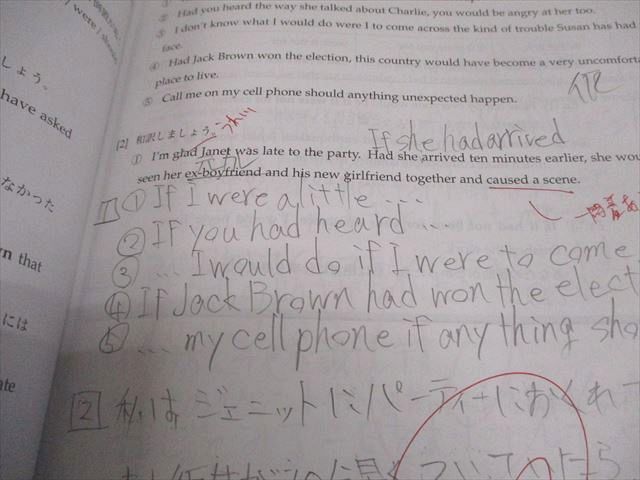 ② Had you heard the way she talked about Charlie, you would be angry at her too.
③ I don't know what I would do were I to come across the kind of trouble Susan has had
face.
④ Had Jack Brown won the election, this country would have become a very uncomforta
place to live.
⑤ Call me on my cell phone should anything unexpected happen.
were / shou
しょう。
have asked
なかった
rn that
には
ate
[2] 和訳しましょう。
If she had arrived
① I'm glad Janet was late to the party. Had she arrived ten minutes earlier, she wou
seen her ex-boyfriend and his new girlfriend together and caused a scene.
1 ① If I were a little ...
② If you had heard ...
③ ... I would do if I were to come
④ If Jack Brown had won the elect
⑤ ... my cell phone if anything sho
2 私は ジェニットにパーティーにおくれて